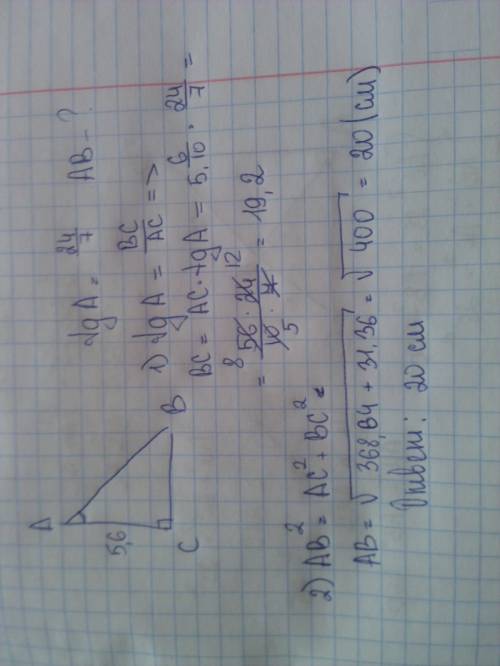 A
5,6
C
B
tg A = 24/7 AB - ?
1) tg A = BC/AC =>
BC = AC · tg A = 5 6/10 · 24/7 =
= 56 · 24 / 10 · 7 = 19,2
8 12
5
2) AB² = AC² + BC²
AB = √368,64 + 31,36 = √400 = 20 (см)
20 см